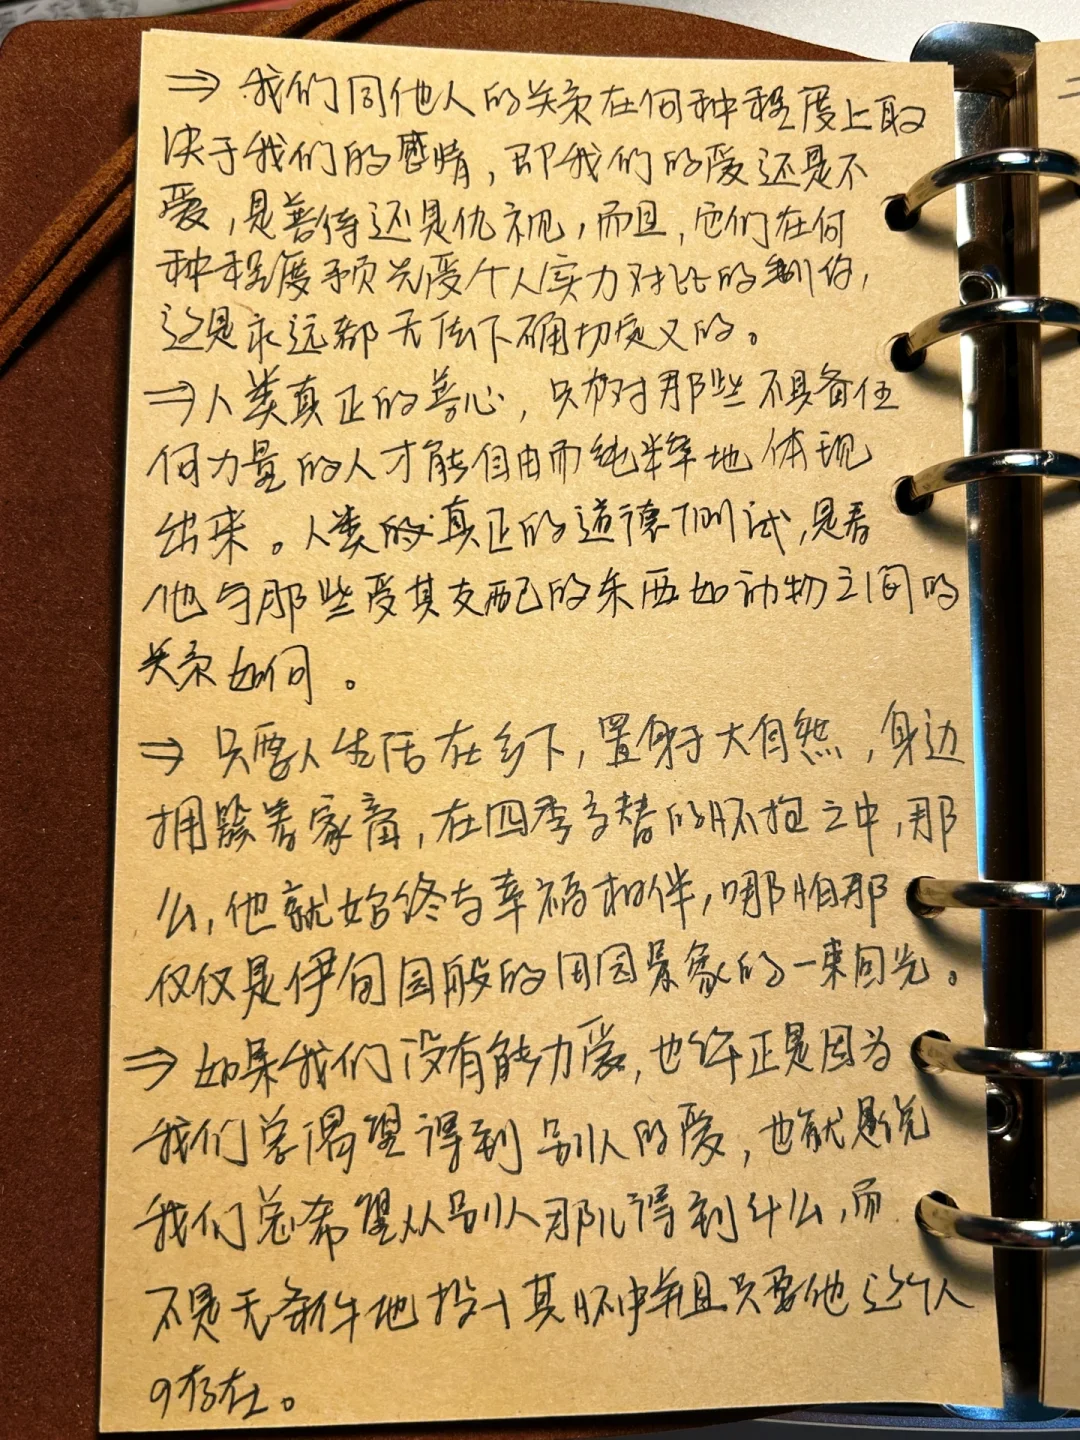 ⇒ 我们同他人的关系在何种程度上取
决于我们的感情，即我们的爱还是不
爱，是善待还是仇视，而且，它们在何
种程度预先受个人实力对比的制约，
这是永远都无法下确切定义的。
⇒人类真正的善心，只有对那些不具备任
何力量的人才能自由而纯粹地体现
出来。人类的真正的道德测试，是看
他与那些受其支配的东西如动物之间的
关系如何。
⇒ 只要人生活在乡下，置身于大自然，身边
拥簇着家畜，在四季交替的怀抱之中，那
么，他就始终与幸福相伴，哪怕那
仅仅是伊甸园般的田园景象的一束回光。
⇒ 如果我们没有能力爱，也许正是因为
我们总渴望得到别人的爱，也就是说
我们总希望从别人那儿得到什么，而
不是无条件地投入其怀中并且只要他这个人
的存在。